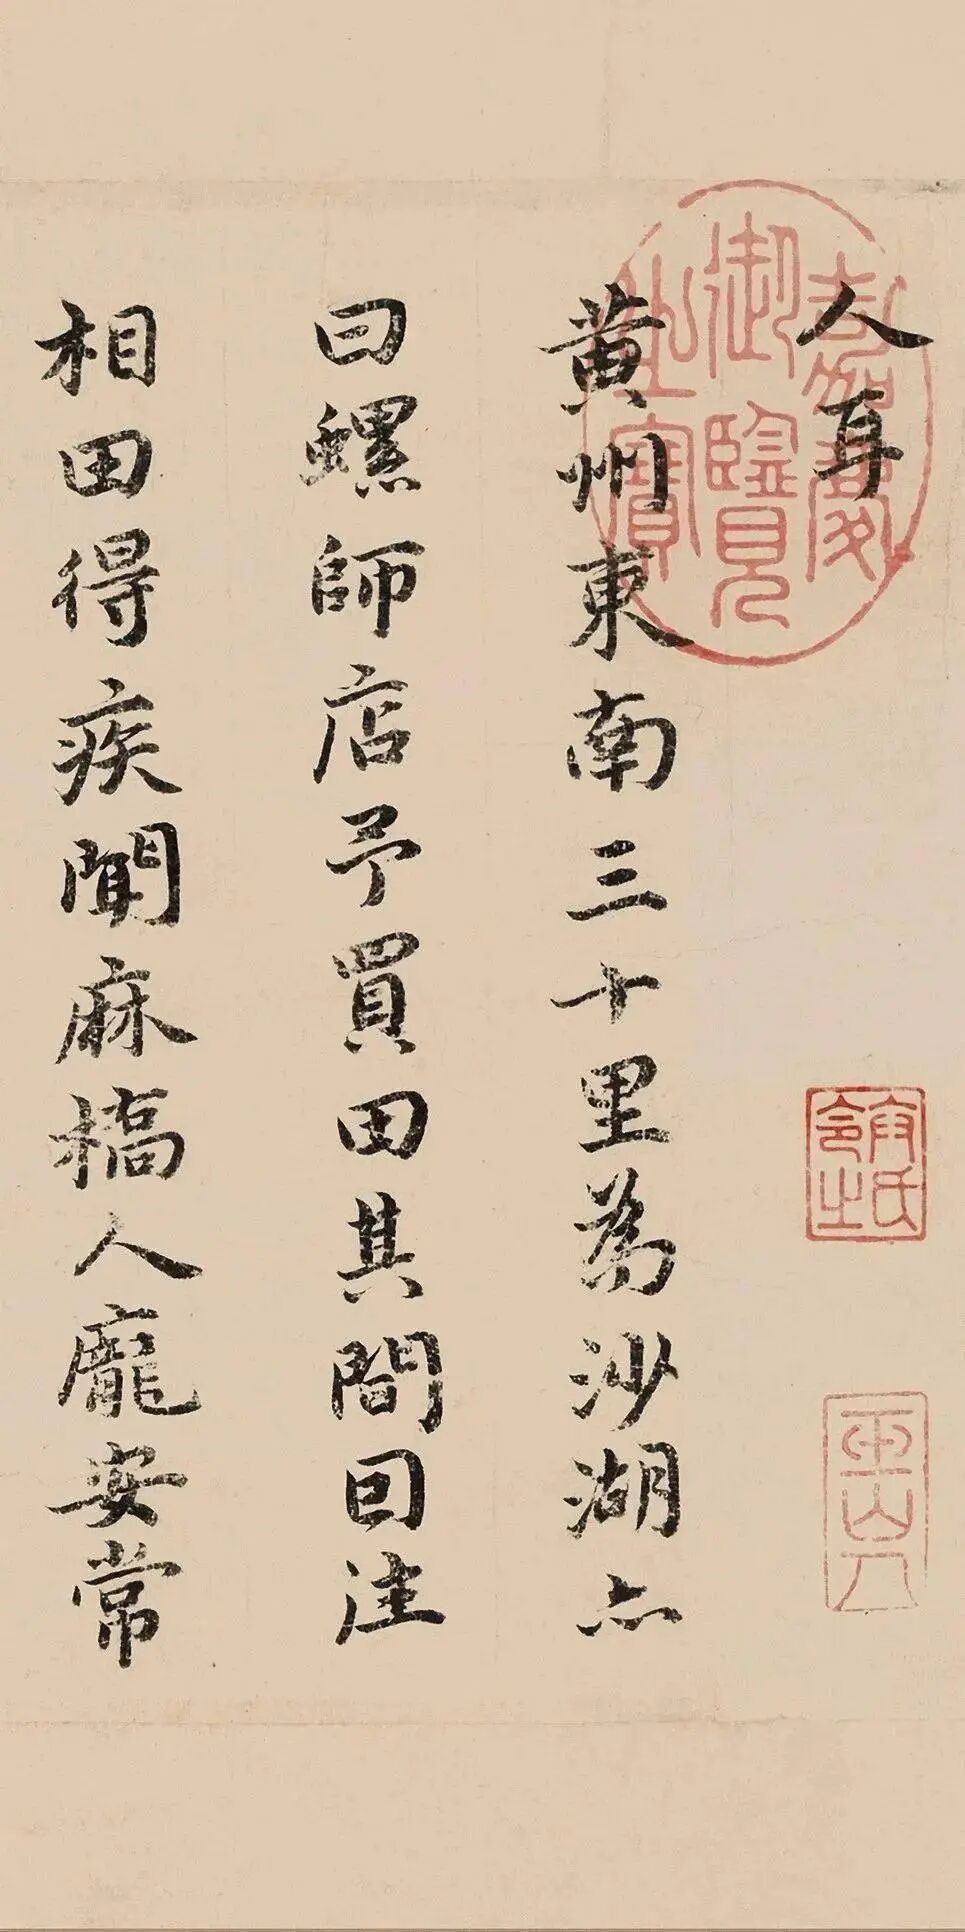 人耳
黄州東南三十里為沙湖亦
曰螺師店予買田其間因往
相田得疾聞麻橋人龐安常
嘉慶
御覽
之寶